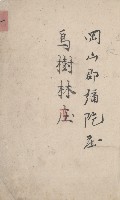 岡山郡彌陀庄
鳥樹林庄